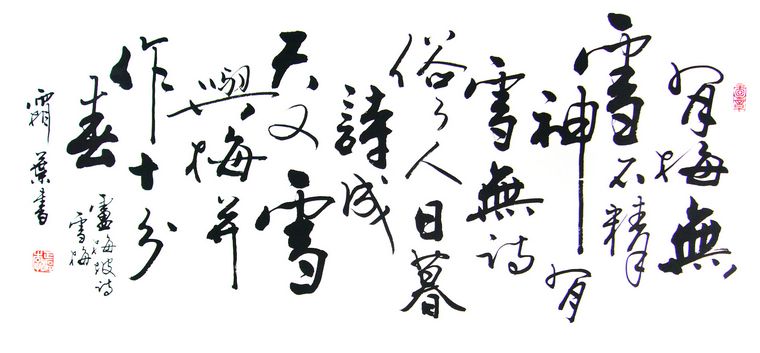 有梅無
雪不精
神有
雪無詩
俗了人日暮
詩成
天又雪
與梅并
作十分
春
盧梅坡詩
雪梅
霜葉書